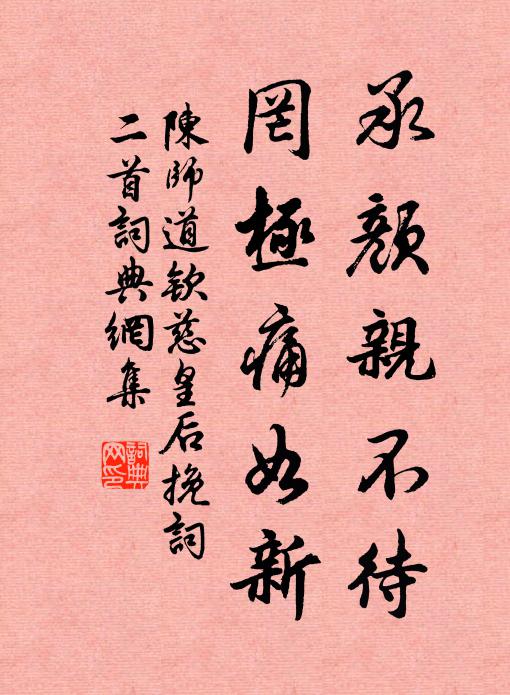 承顏親不待
罔極痛如新
陳師道欽慈皇后挽詞
二首詞典網集
詞典
網印